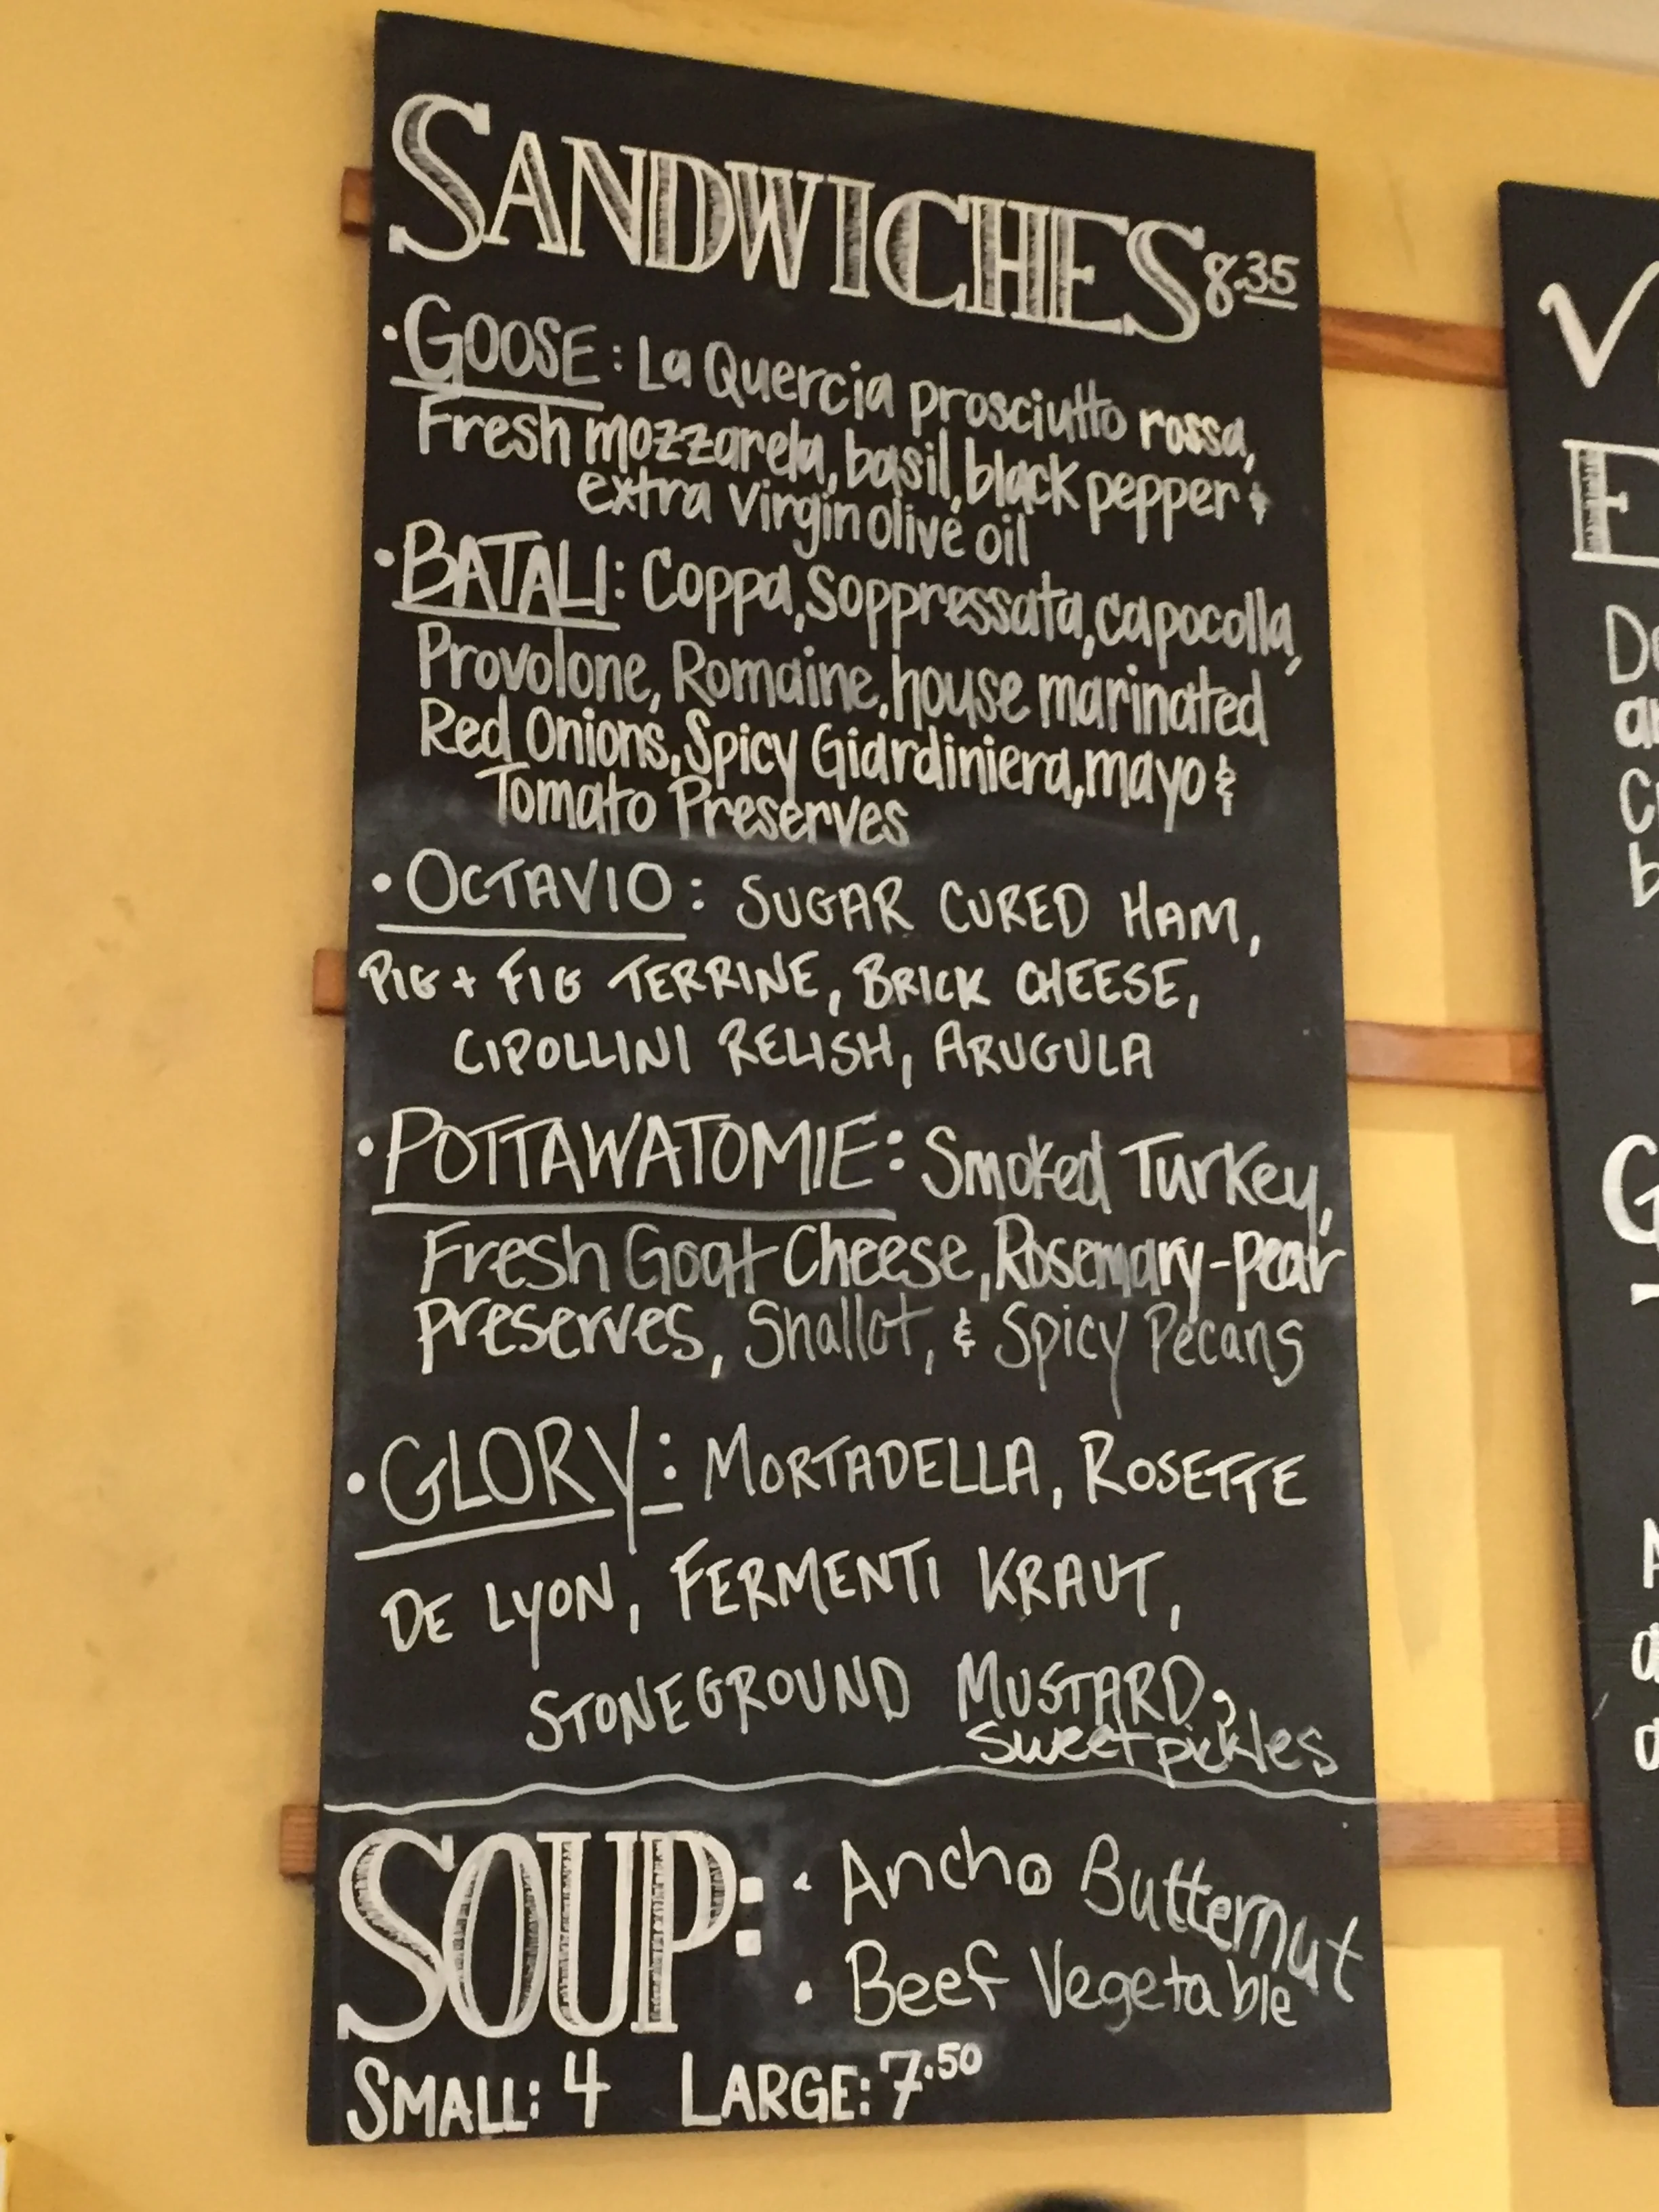 SANDWICHES 8.35
• GOOSE: La Quercia prosciutto rossa,
Fresh mozzarela, basil, black pepper &
extra virgin olive oil
• BATALI: Coppa, Soppressata, capocolla,
Provolone, Romaine, house marinated
Red Onions, Spicy Giardiniera, mayo &
Tomato Preserves
• OCTAVIO: SUGAR CURED HAM,
PIG + FIG TERRINE, BRICK CHEESE,
CIPOLLINI RELISH, ARUGULA
• POTTAWATOMIE: Smoked Turkey,
Fresh Goat Cheese, Rosemary-pear
preserves, Shallot, & Spicy Pecans
• GLORY: MORTADELLA, ROSETTE
DE LYON, FERMENTI KRAUT,
STONEGROUND MUSTARD,
Sweet pickles
SOUP: • Ancho Butternut
• Beef Vegetable
SMALL: 4 LARGE: 7.50